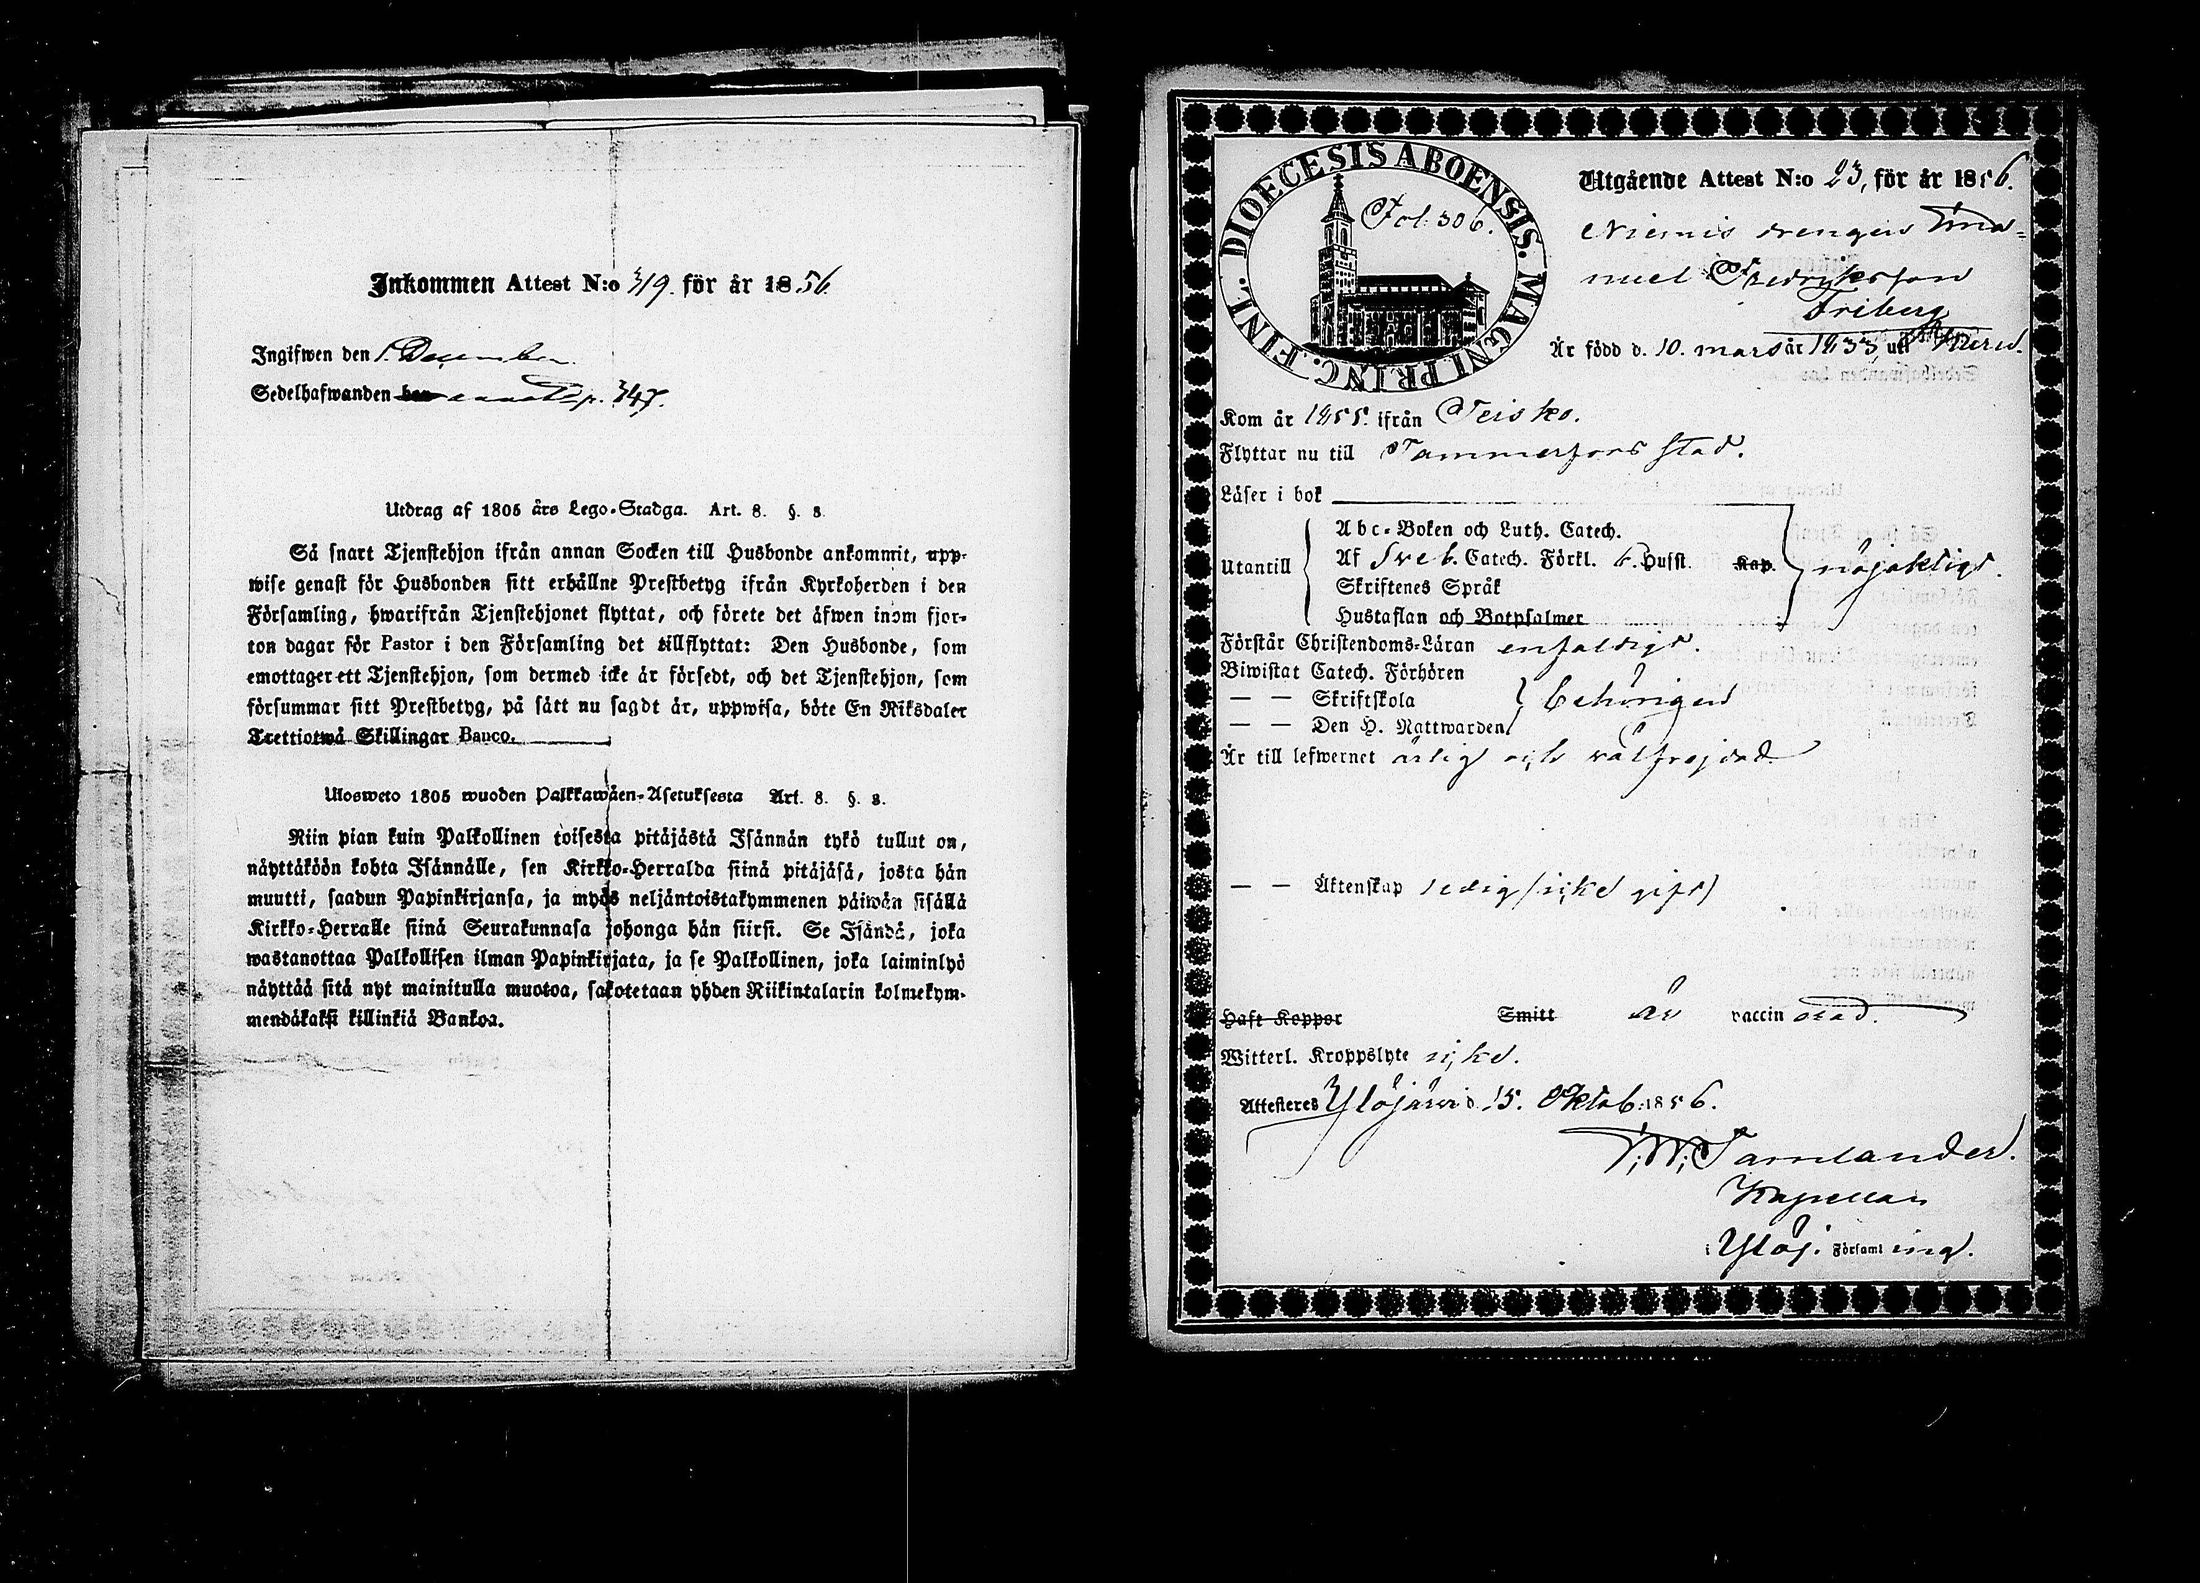 Inkommen Attest N:o 319. för år 1856.
Ingifwen den 1. December
Sedelhafwanden den p. 347.
Utdrag af 1805 års Lego-Stadga. Art. 8. §. 8.
Så snart Tjenstehjon ifrån annan Socken till Husbonde ankommit, upp-
wise genast för Husbonden sitt erhållne Prestbetyg ifrån Kyrkoherden i den
Församling, hwarifrån Tjenstehjonet flyttat, och förete det äfwen inom fjor-
ton dagar för Pastor i den Församling det tillflyttat: Den Husbonde, som
emottager ett Tjenstehjon, som dermed icke är försedt, och det Tjenstehjon, som
försummar sitt Prestbetyg, på sätt nu sagdt är, uppwisa, böte En Riksdaler
Trettiotwå Skillingar Banco.
Ulosweto 1805 wuoden Palkkawäen-Asetuksesta Art. 8. §. 8.
Niin pian kuin Palkollinen toisesta pitäjästä Isännän tykö tullut on,
näyttäköön kohta Isännälle, sen Kirkko-Herralda siinä pitäjäsä, josta hän
muutti, saadun Papinkirjansa, ja myös neljäntoistakymmenen päiwän sisällä
Kirkko-Herralle siinä Seurakunnasa johonga hän siirsi. Se Isändä, joka
wastanottaa Palkollisen ilman Papinkirjata, ja se Palkollinen, joka laiminlyö
näyttää sitä nyt mainitulla muotoa, sakotetaan yhden Riikintalarin kolmekym-
mendäkaksi killinkiä Bankoa.
DIOECESIS ABOENSIS. MAGNI PRINC. FINL.
Fol: 306.
Utgående Attest N:o 23, för år 1856.
Niemis drengen Ema-
nuel Fredriksson
Friberg
Är född d. 10. mars år 1833, uti
Kom år 1855. ifrån Teisko.
Flyttar nu till Tammerfors stad.
Läser i bok
Utantill
Abc-Boken och Luth. Catech.
Af Sveb. Catech. Förkl. 6. Husst. Kap.
Skriftenes Språk
Hustaflan och Botpsalmer
nöjaktigt.
Förstår Christendoms-Läran enfaldigt.
Biwistat Catech. Förhören
— — Skriftskola
— — Den H. Nattwarden
behörigen
Är till lefwernet ärlig och välfrejdad
— — Äktenskap ledig (icke gift)
Haft Koppor Smitt är vaccinerad.
Witterl. Kroppslyte icke.
Attesteres Ylöjärvi d. 15. Oktob: 1856.
F. W. Tamlander.
Kapellan
i Ylöj. Församling.